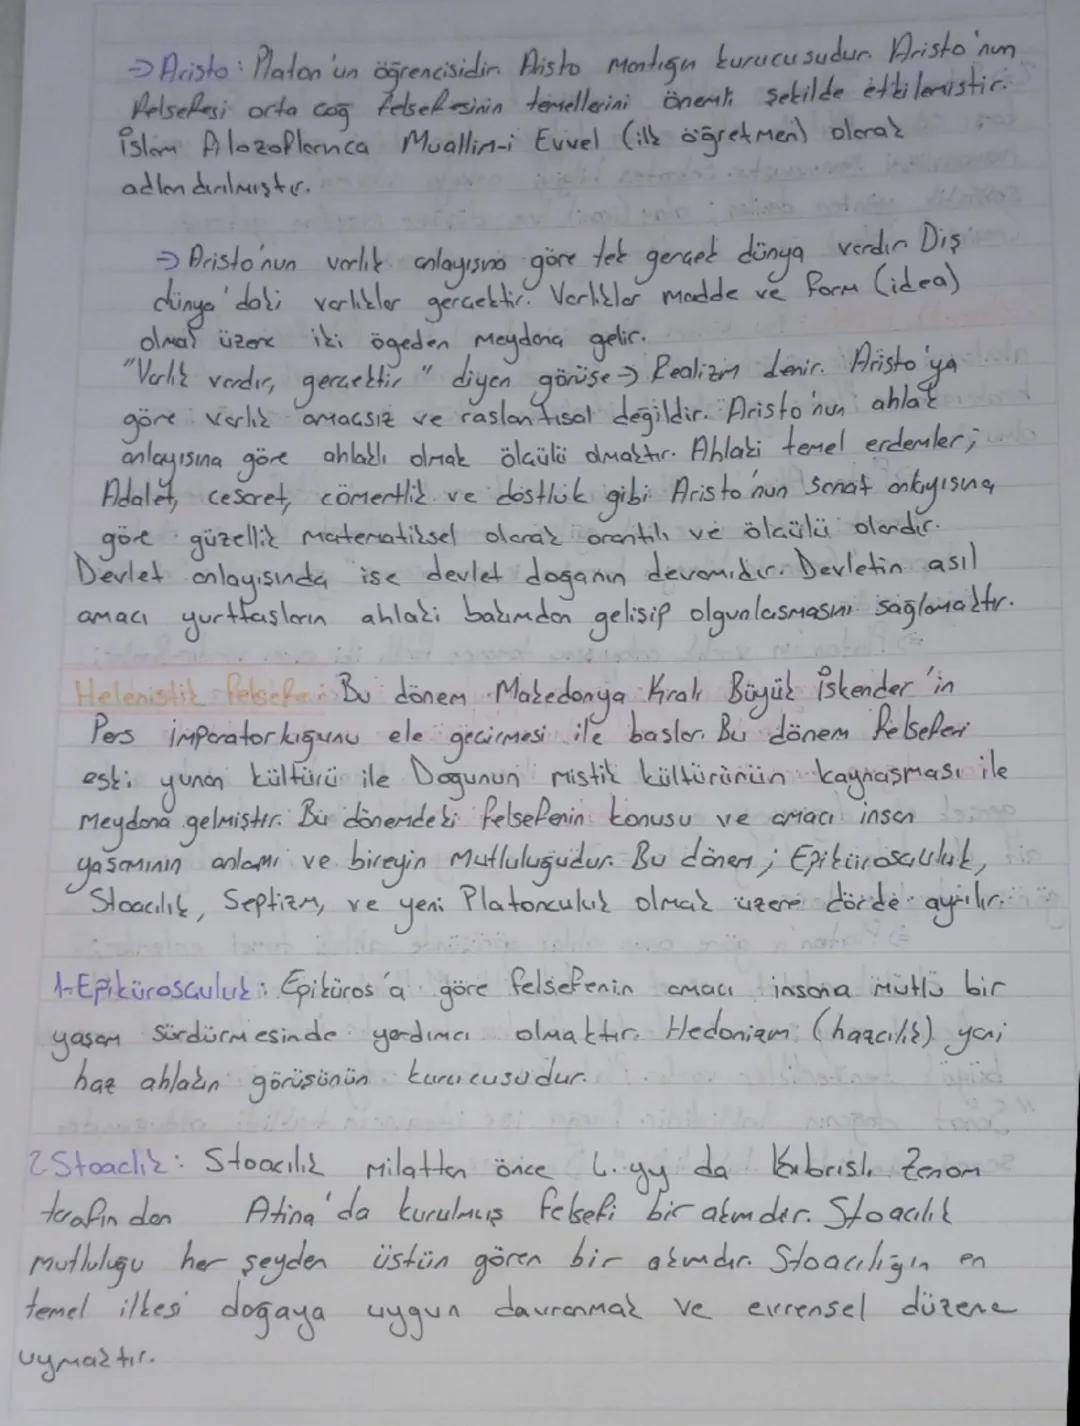 → Aristo: Platon'un öğrencisidir. Aisto Mantığın kurucusudur. Aristo'nun
felsefesi orta çağ felsefesinin temellerini önemli şekilde etkilemiştir.
İslam filozoflarınca Muallim-i Evvel (ilk öğretmen) olarak
adlandırılmıştır.
→ Aristo'nun varlık anlayışına göre tek gerçek dünya vardır. Dış
dünya'daki varlıklar gerçektir. Varlıklar madde ve form (idea)
olmak üzere iki ögeden meydana gelir.
"Varlık vardır, gerçektir" diyen görüşe → Realizm denir. Aristo'ya
göre varlık amaçsız ve raslantısal değildir. Aristo'nun ahlak
anlayışına göre ahlaklı olmak ölçülü olmaktır. Ahlaki temel erdemler;
Adalet, cesaret, cömertlik ve dostluk gibi Aristo'nun Sanat anlayışına
göre güzellik matematiksel olarak orantılı ve ölçülü olandır.
Devlet anlayışında ise devlet doğanın devamıdır. Devletin asıl
amacı yurttaşların ahlaki bakımdan gelişip olgunlaşmasını sağlamaktır.
Helenistik felsefe: Bu dönem Makedonya Kralı Büyük İskender'in
Pers imparatorkığunu ele geçirmesi ile başlar. Bu dönem felsefesi
eski yunan kültürü ile Doğunun mistik kültürünün kaynaşması ile
meydana gelmiştir. Bu dönemdeki felsefenin konusu ve amacı insan
yaşamının anlamı ve bireyin mutluluğudur. Bu dönem; Epikürosçuluk,
Stoacılık, Septizm, ve yeni Platonculuk olmak üzere dörde ayrılır.
1-Epikürosçuluk: Epiküros'a göre felsefenin amacı insana mutlu bir
yaşam sürdürmesinde yardımcı olmaktır. Hedonizm (hazcılık) yani
haz ahlakın görüşünün kurucusudur.
2 Stoaclık: Stoacılık milattan önce 4. yy da Kıbrıslı Zenon
tarafından Atina'da kurulmuş felsefi bir akımdır. Stoacılık
mutluluğu her şeyden üstün gören bir akımdır. Stoacılığın en
temel ilkesi doğaya uygun davranmak ve evrensel düzene
uymaktır.